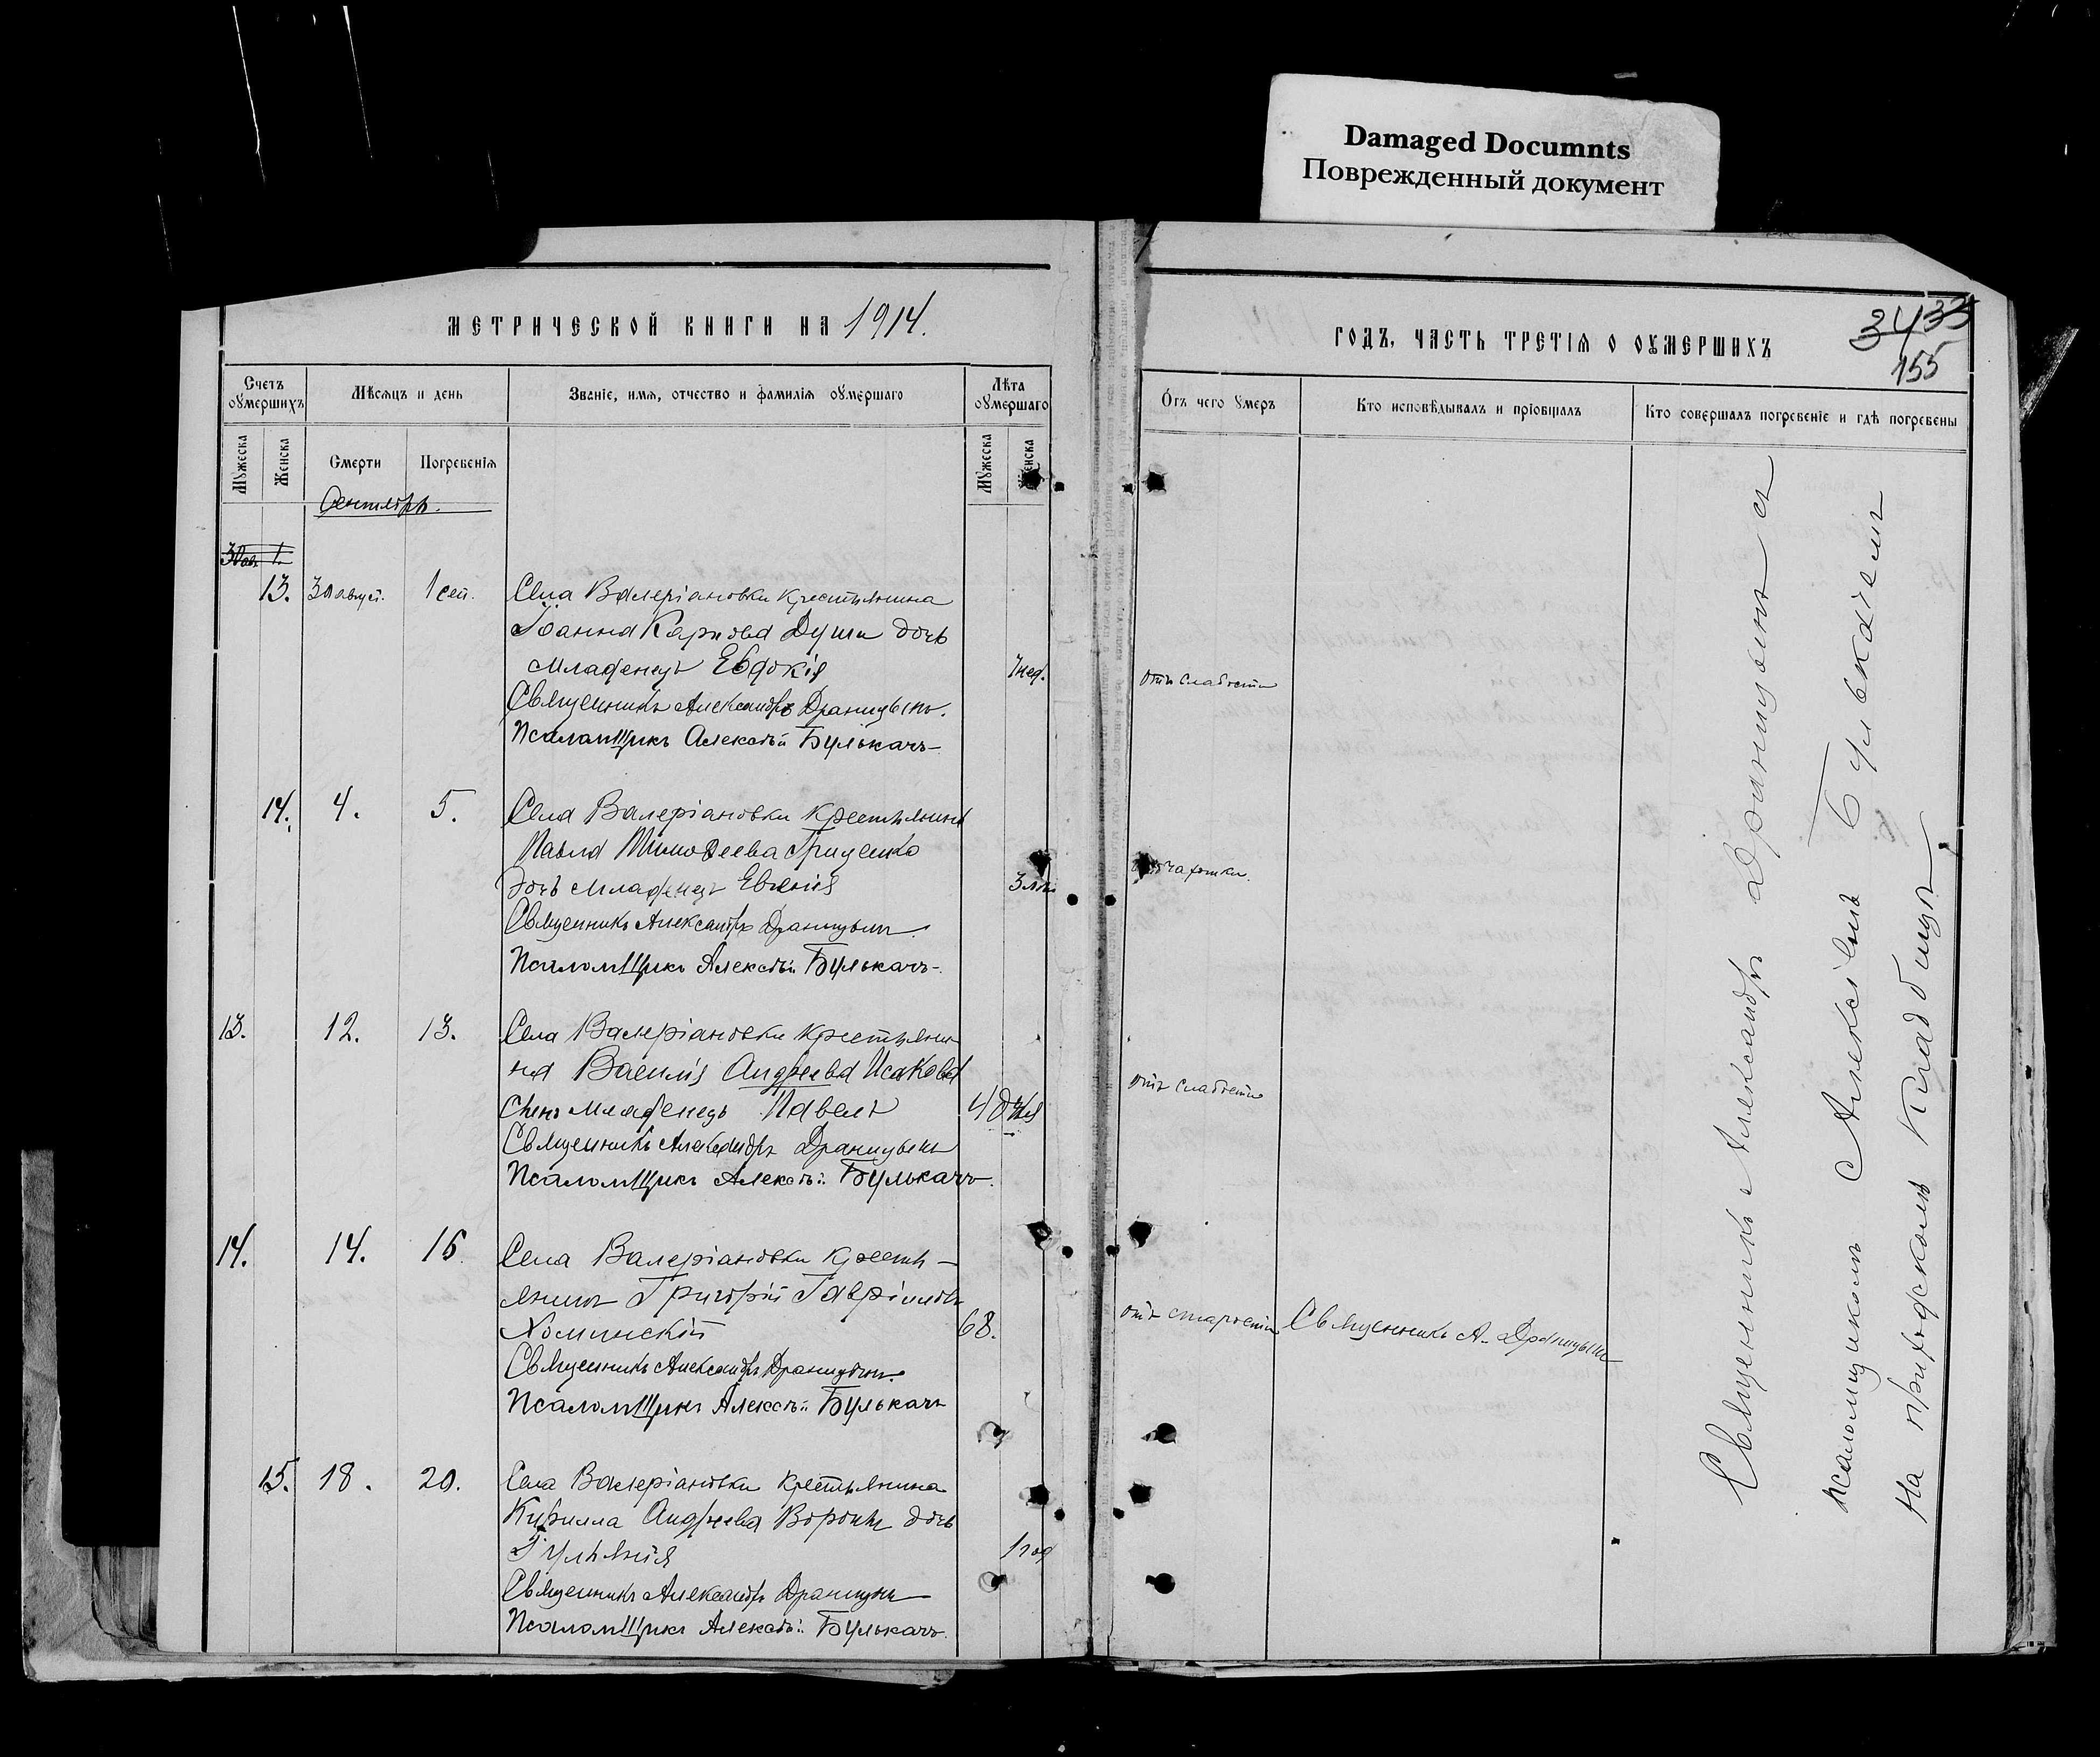 Damaged Documnts
Поврежденный документ
МЕТРИЧЕСКОЙ КНИГИ НА 1914.
ГОДЪ, ЧАСТЬ ТРЕТІЯ О ОУМЕРШИХЪ
34 33
155
Счетъ оумершихъ
Мѣсяцъ и день
Званіе, имя, отчество и фамилія оумершаго
Лѣта оумершаго
Отъ чего умеръ
Кто исповѣдывалъ и пріобщалъ
Кто совершалъ погребеніе и гдѣ погребены
Мужеска
Женска
Смерти
Погребенія
Мужеска
Женска
Сентябрь.
13. 30 август. 1 сен. Села Валеріановки крестьянина
Іоанна Карпова Души дочь
младенецъ Евдокія 7 нед. отъ слабости
Священникъ Александръ Драницынъ.
Псаломщикъ Алексѣй Булькачъ
14. 4. 5. Села Валеріановки крестьянина
Павла Тимоѳеева Гриценко
дочь младенецъ Евгенія чахотки.
Священникъ Александръ Драницынъ.
Псаломщикъ Алексѣй Булькачъ
13. 12. 13. Села Валеріановки крестьяни-
на Василія Андреева Исакова
сынъ младенецъ Павелъ 4 дня отъ слабости
Священникъ Александръ Драницынъ
Псаломщикъ Алексѣй Булькачъ.
14. 14. 16. Села Валеріановки кресть-
янинъ Григорій Гавріиловъ
Хоминскій 68. отъ старости Священникъ А. Драницынъ
Священникъ Александръ Драницынъ.
Псаломщикъ Алексѣй Булькачъ
15. 18. 20. Села Валеріановки крестьянина
Кирилла Андреева Вороны дочь
Іуліанія 1 год
Священникъ Александръ Драницынъ
Псаломщикъ Алексѣй Булькачъ.
Священникъ Александръ Драницынъ съ
псаломщикомъ Алексіемъ Булькачемъ
На приходскомъ кладбищѣ